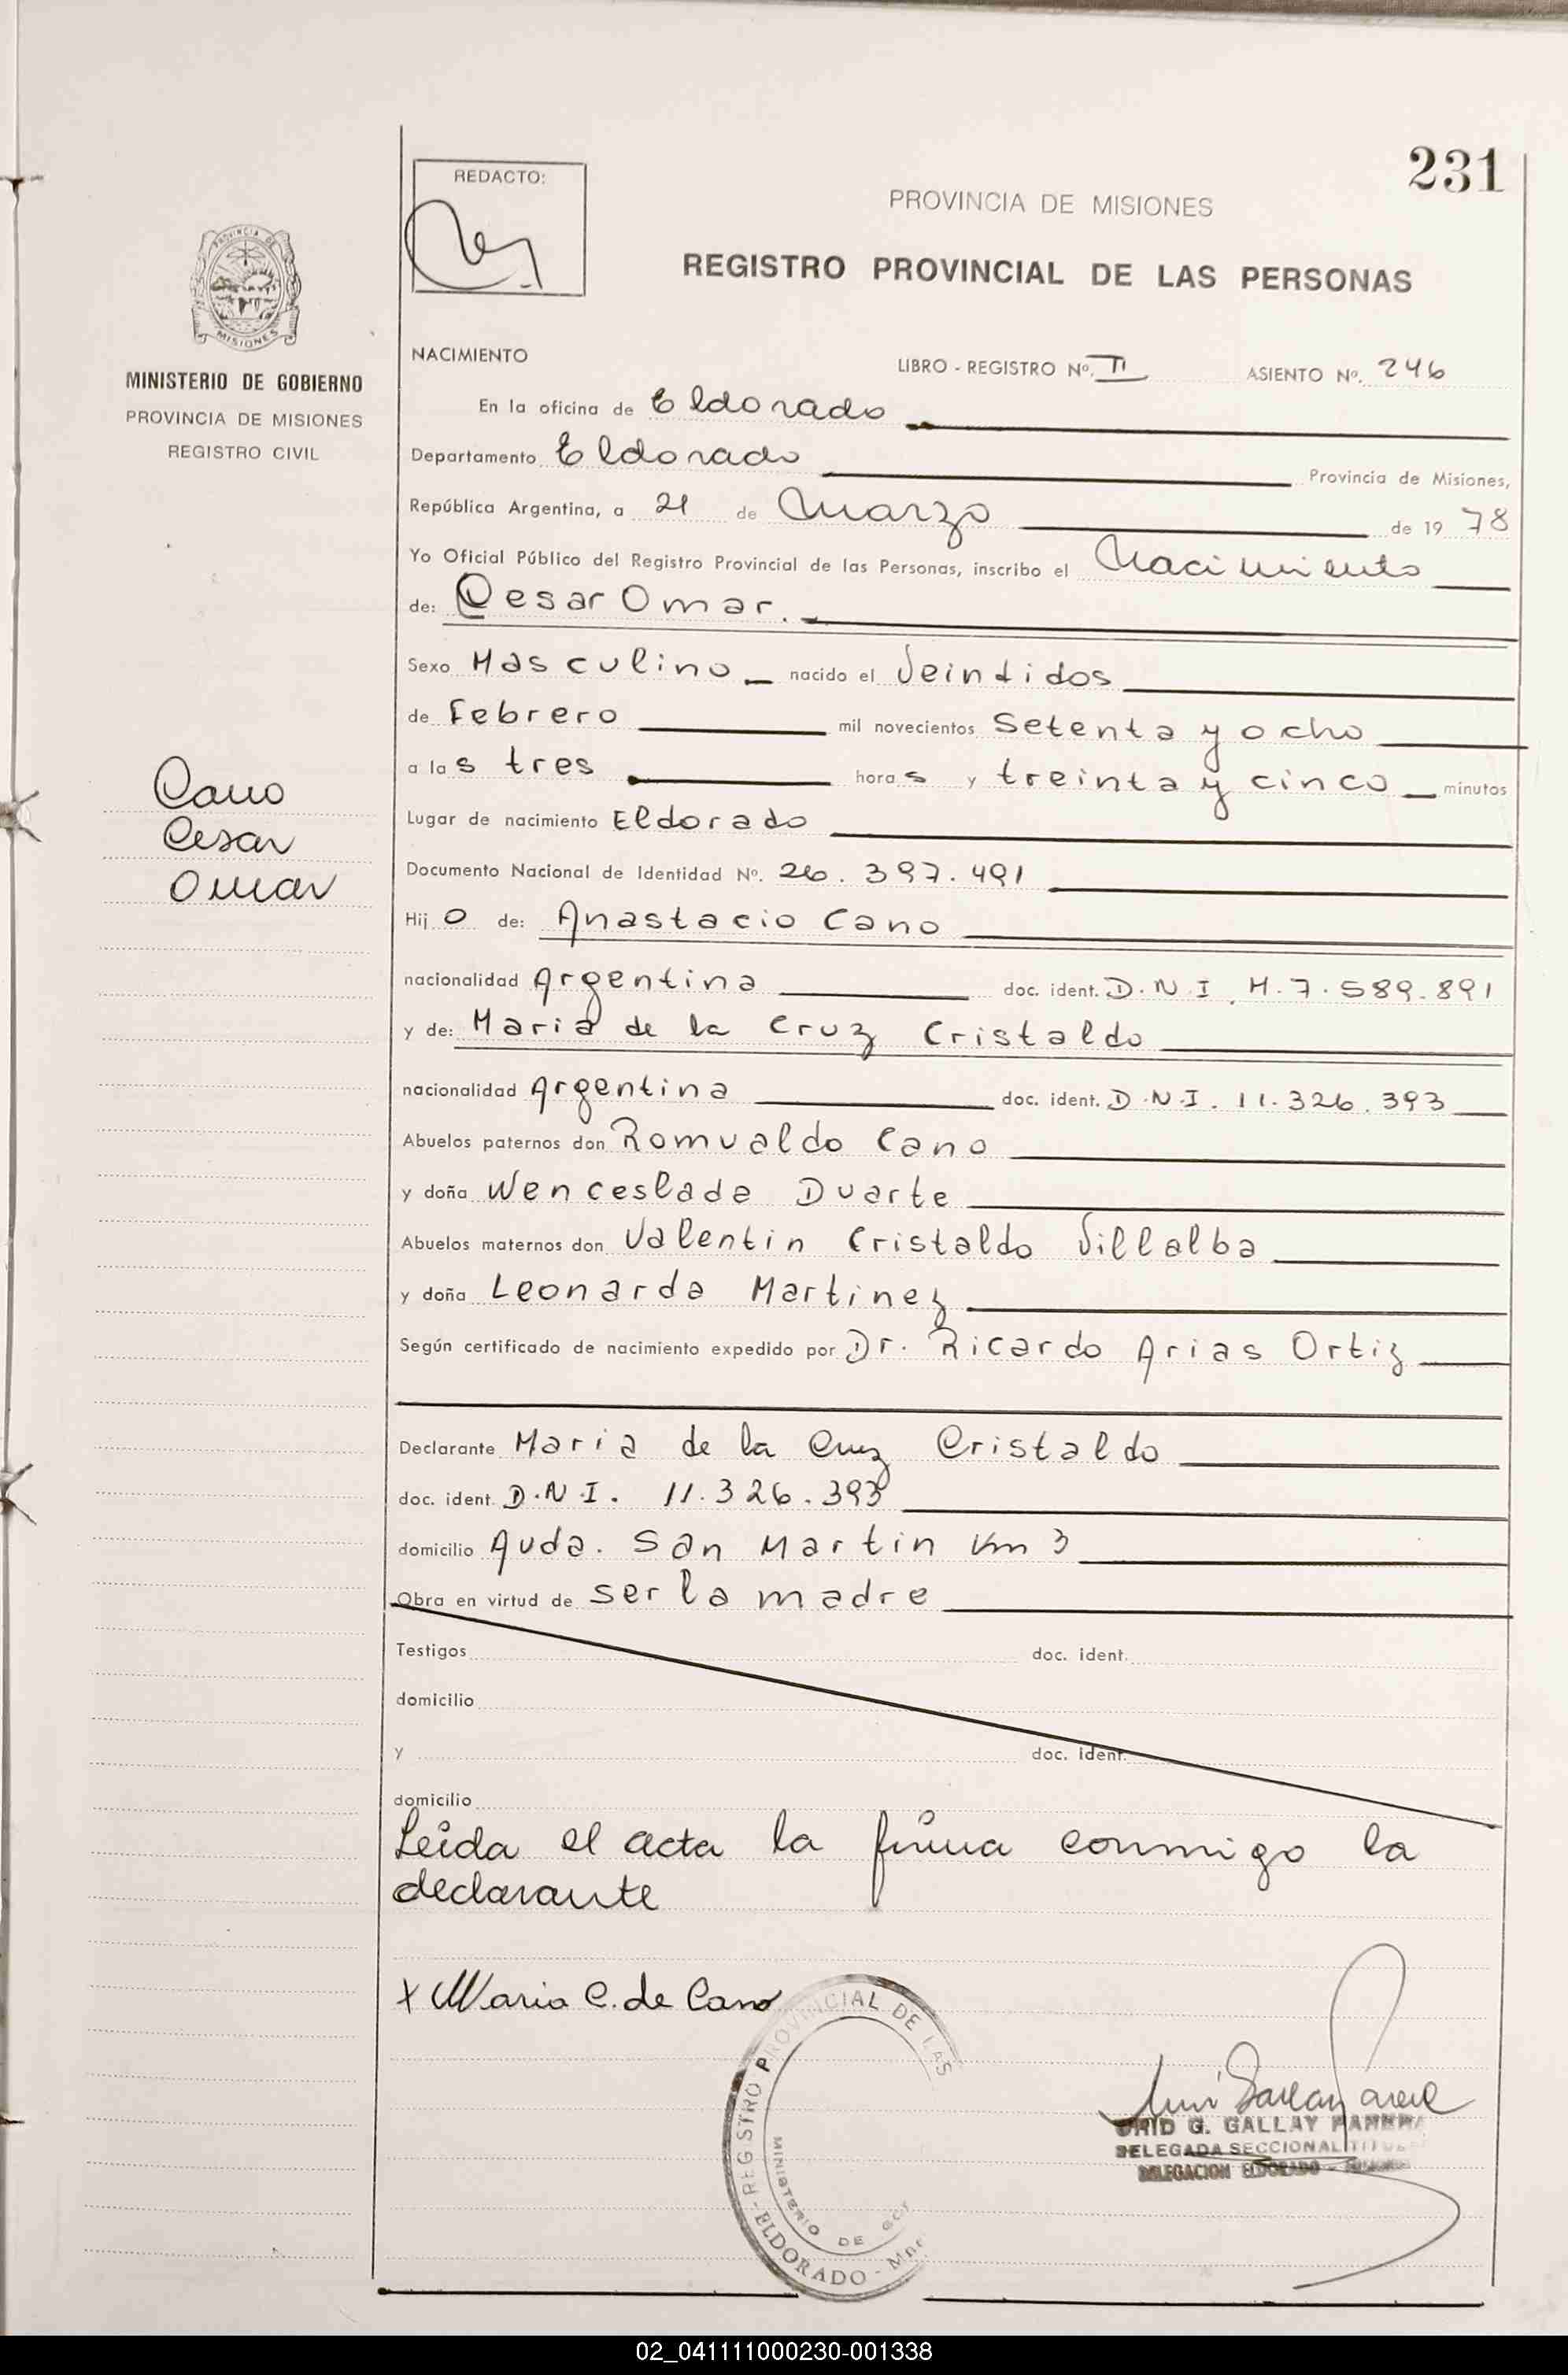 231
REDACTO:
PROVINCIA DE MISIONES
REGISTRO PROVINCIAL DE LAS PERSONAS
PROVINCIA DE
MISIONES
MINISTERIO DE GOBIERNO
PROVINCIA DE MISIONES
REGISTRO CIVIL
NACIMIENTO LIBRO - REGISTRO Nº. II ASIENTO Nº. 246
En la oficina de Eldorado
Departamento Eldorado Provincia de Misiones,
República Argentina, a 21 de Marzo de 19 78
Yo Oficial Público del Registro Provincial de las Personas, inscribo el Nacimiento
de: Cesar Omar.
Sexo Masculino nacido el Veintidos
de Febrero mil novecientos Setenta y ocho
a las tres horas y treinta y cinco minutos
Cano
Cesar
Omar
Lugar de nacimiento Eldorado
Documento Nacional de Identidad Nº. 26.397.491
Hijo de: Anastacio Cano
nacionalidad Argentina doc. ident. D.N.I. M.7.589.891
y de: Maria de la Cruz Cristaldo
nacionalidad Argentina doc. ident. D.N.I. 11.326.393
Abuelos paternos don Romualdo Cano
y doña Wenceslada Duarte
Abuelos maternos don Valentin Cristaldo Villalba
y doña Leonarda Martinez
Según certificado de nacimiento expedido por Dr. Ricardo Arias Ortiz
Declarante Maria de la Cruz Cristaldo
doc. ident. D.N.I. 11.326.393
domicilio Avda. San Martin Km 3
Obra en virtud de ser la madre
Testigos doc. ident.
domicilio
y doc. ident.
domicilio
Leida el acta la firma conmigo la
declarante
x Maria C. de Cano
REGISTRO PROVINCIAL DE LAS
MINISTERIO DE
- ELDORADO -
G. GALLAY
DELEGADA SECCIONAL
DELEGACION ELDORADO
02_041111000230-001338